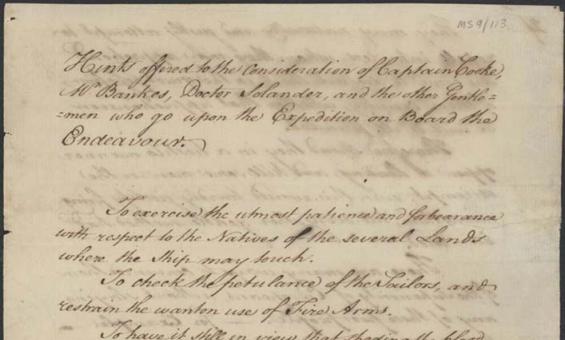 MS 9/113.
Hints offered to the consideration of Captain Cooke,
Mr Bankes, Doctor Solander, and the other Gentle=
=men who go upon the Expedition on Board the
Endeavour.
To exercise the utmost patience and forbearance
with respect to the Natives of the several Lands
where the Ship may touch.
To check the petulance of the Sailors, and
restrain the wanton use of Fire Arms.
To have it still in view that sheding the blood